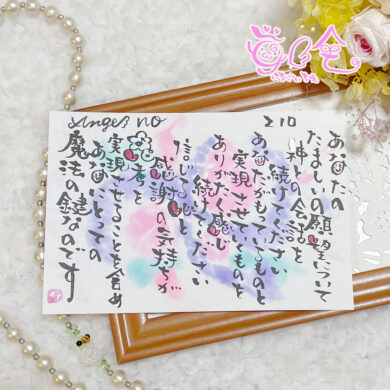 Angel no 210
あなたの
たましいの願望について
神との会話を
続けてください
あなたがもっているものと
実現させているものを
ありがたく感じ
続けてください
信じる心と
感謝の気持ちが
を
実現させることを含め
あなたにとっての
魔法の鍵なのです